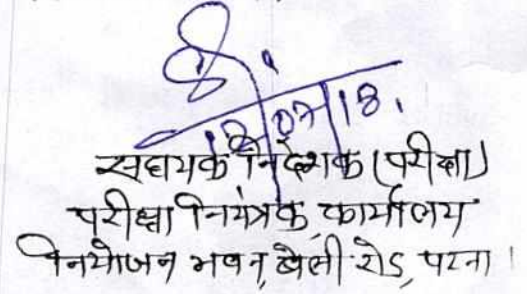 12/07/18.
सहायक निदेशक (परीक्षा)
परीक्षा नियंत्रक कार्यालय
नियोजन भवन, बेली रोड, पटना।